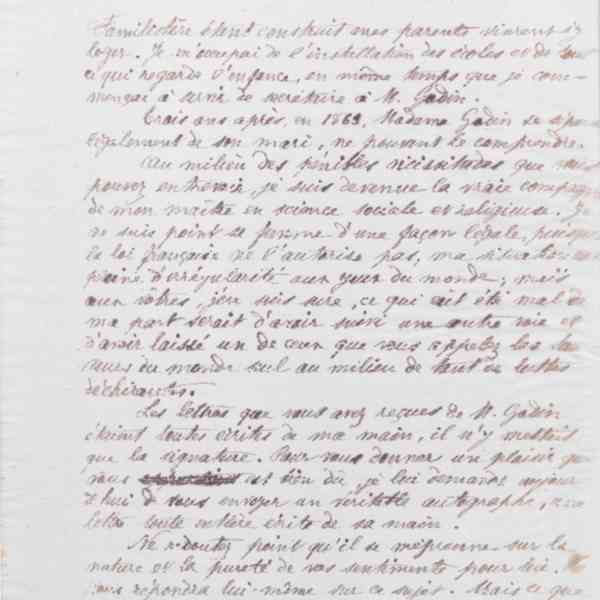 Familistère étant construit mes parents vinrent s'y
loger. Je m'occupai de l'installation des écoles et de tout
ce qui regarde l'enfance, en même temps que je com-
mençai à servir de secrétaire à M. Godin.
Trois ans après, en 1863, Madame Godin se sépara
légalement de son mari, ne pouvant le comprendre.
Au milieu des pénibles vicissitudes que vous
pouvez entrevoir, je suis devenue la vraie compagne
de mon maître en science sociale et religieuse. Je
ne suis point sa femme d'une façon légale, puisque
la loi française ne l'autorise pas, ma situation est
pleine d'irrégularité aux yeux du monde ; mais
aux vôtres, j'en suis sure, ce qui eût été mal de
ma part serait d'avoir suivi une autre voie et
d'avoir laissé un de ceux que vous appelez les
du monde seul au milieu de tant de luttes
déchirantes.
Les lettres que vous avez reçues de M. Godin
étaient toutes écrites de ma main, il n'y mettait
que la signature. Pour vous donner un plaisir qui
vous est bien dû, je lui demande aujour
d'hui de vous envoyer un véritable autographe, une
lettre toute entière écrite de sa main.
Ne redoutez point qu'il se méprenne sur la
nature et la pureté de vos sentiments pour lui. Il
vous répondra lui-même sur ce sujet. Mais ce que